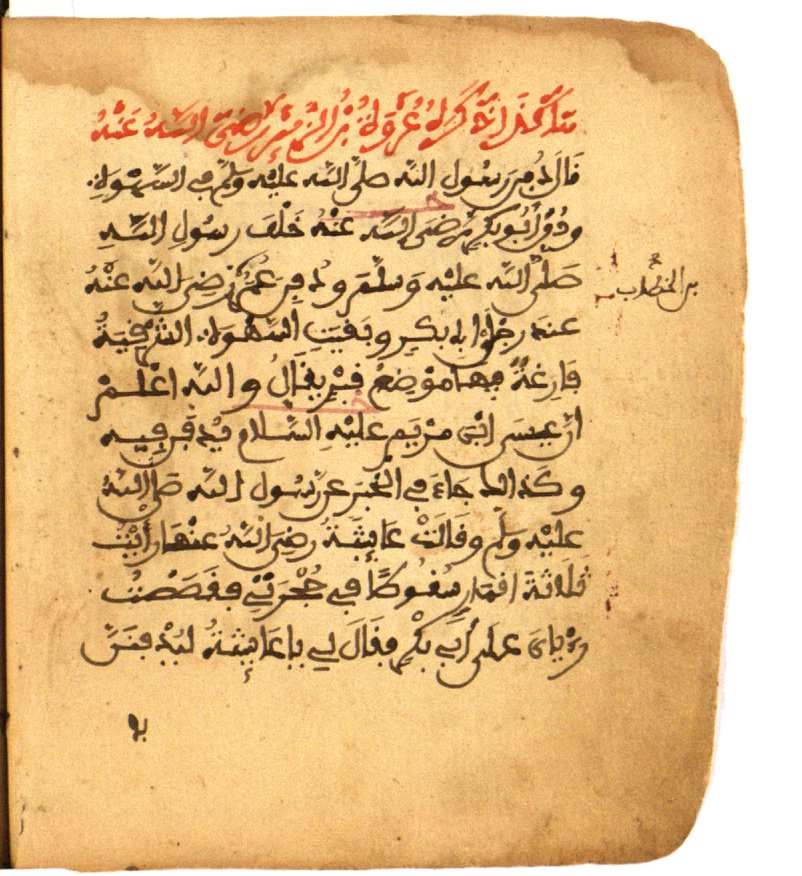 هاكذا ذكره عروة بن الزبير رضي الله عنه
قال دفن رسول الله صلى الله عليه وسلم في السهوة
ودفن أبو بكر رضي الله عنه خلف رسول الله
صلى الله عليه وسلم ودفن عمر رضي الله عنه
بن الخطاب
عند رجلي أبي بكر وبقيت السهوة الشرقية
فارغة فيها موضع قبر يقال والله اعلم
أن عيسى ابن مريم عليه السلام يدفن فيه
وكذالك جاء في الخبر عن رسول الله صلى الله
عليه وسلم وقالت عائشة رضي الله عنها رأيت
ثلاثة اقمار سقوطا في حجرتي فقصصت
رؤياي على أبي بكر فقال لي يا عائشة ليدفنن